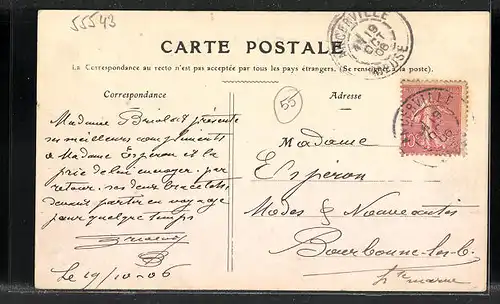 55543
CARTE POSTALE
La Correspondance au recto n'est pas acceptée par tous les pays étrangers. (Se renseigner à la poste).
Correspondance
Adresse
55
Madame présente
ses meilleurs compliments
à Madame Espéron et la
prie de lui envoyer par
retour ses deux bracelets
devant partir en voyage
pour quelque temps
Le 19/10-06
Madame
Espéron
Modes & Nouveautés
Bourbonne-les-B.
Hte Marne
19
OCT
06
MEUSE